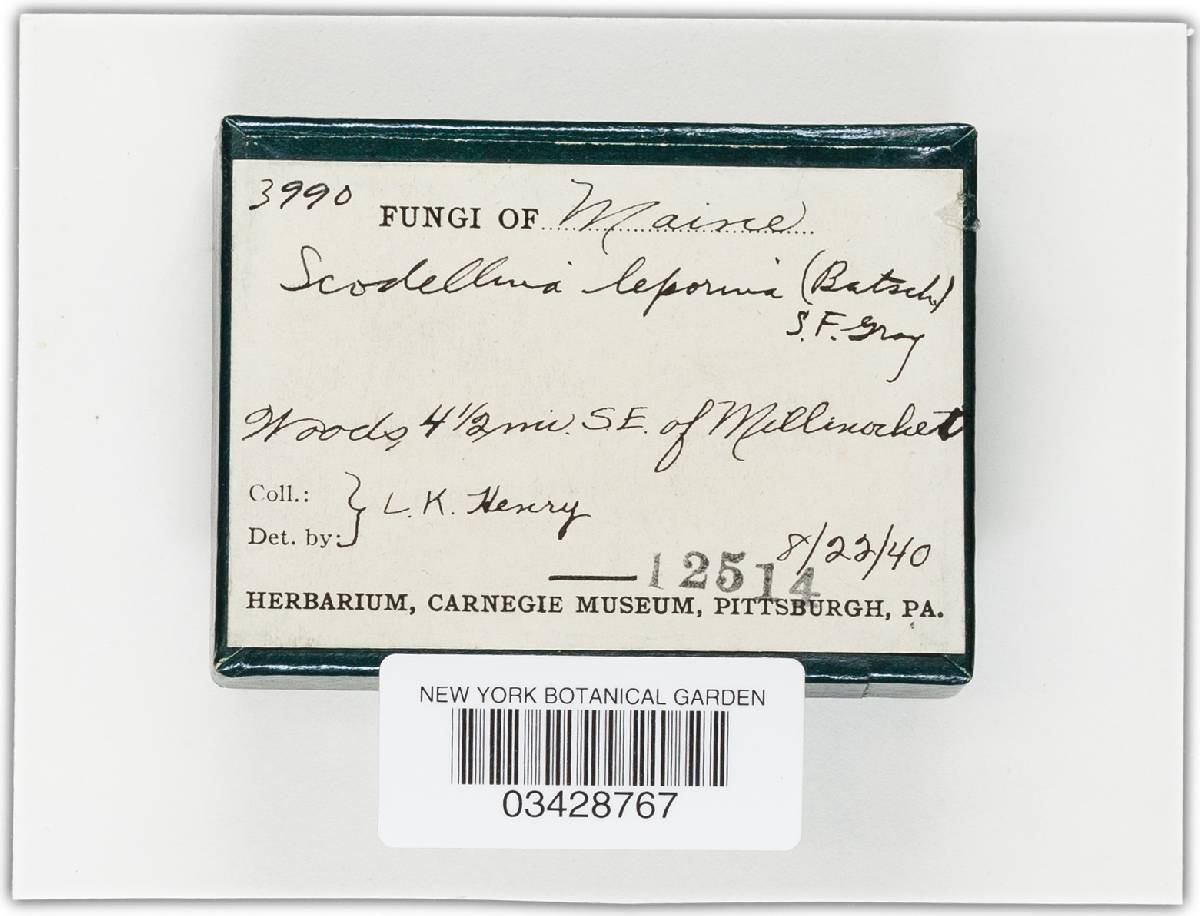 3990
FUNGI OF Maine
Scodellina leporina (Batsch.)
S.F. Gray
Woods, 4 1/2 mi. S.E. of Millinocket
Coll.: } L.K. Henry
Det. by:
8/22/40
12514
HERBARIUM, CARNEGIE MUSEUM, PITTSBURGH, PA.
NEW YORK BOTANICAL GARDEN
03428767